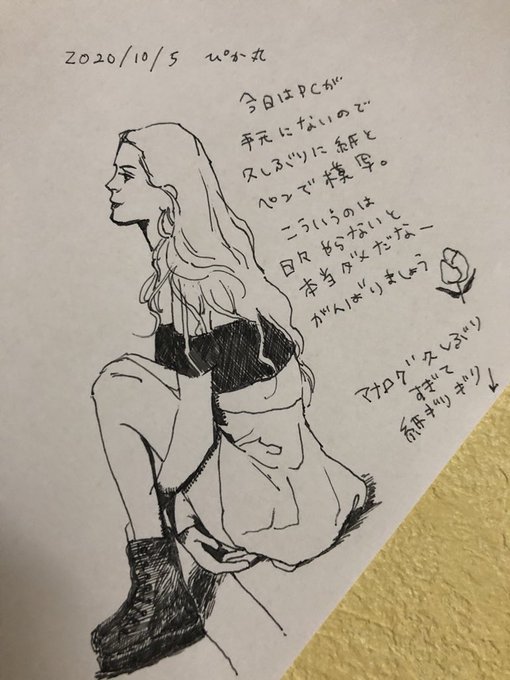 2020/10/5 ぴか丸
今日はPCが
手元にないので
久しぶりに紙と
ペンで模写。
こういうのは
日々やらないと
本当ダメだなー
がんばりましょう
アナログ久しぶり
すぎて
紙ぎりぎり↓